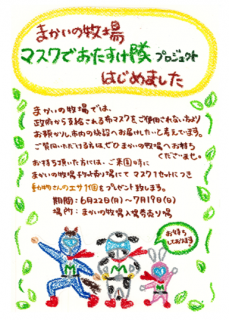 まかいの牧場
マスクでおたすけ隊プロジェクト
はじめました
まかいの牧場では、
政府から支給される布マスクをご使用されない方より
お預かりし、市内の施設へお届けしたいと考えています。
ご賛同いただける方は、ぜひまかいの牧場へお持ち
くださいませ。
お持ち頂いた方には、ご来園時に
まかいの牧場
売り場にて マスク1セットにつき
動物さんのエサ1個をプレゼント致します。
期間：6月22日(月)～7月19日(日)
場所：まかいの牧場入場券売り場
お待ち
しております
M
M
M